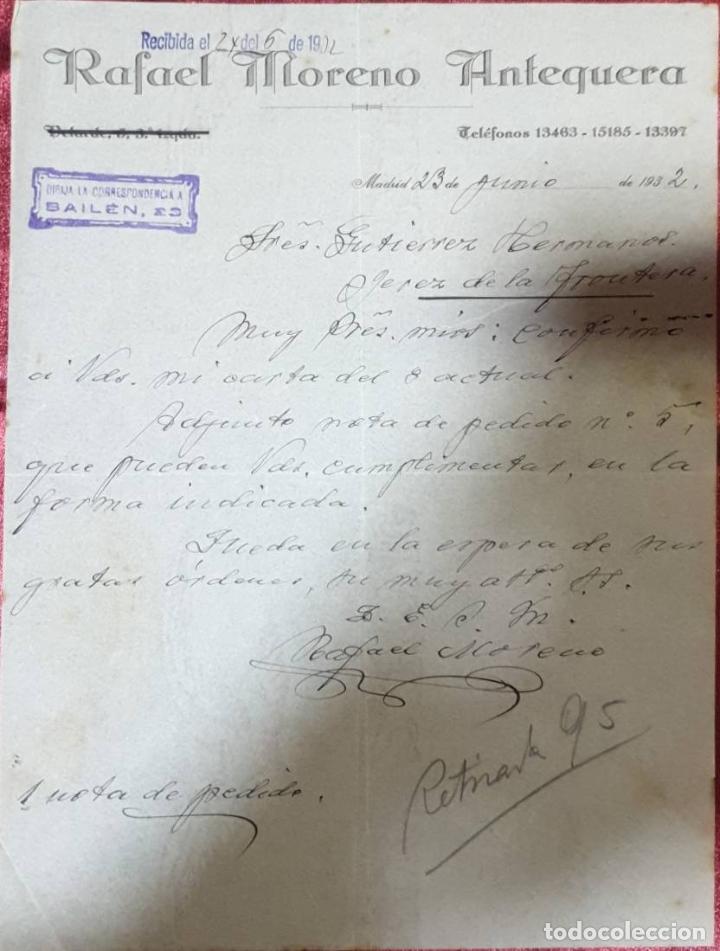 Recibida el 24 del 6 de 1932
Rafael Moreno Antequera
Velarde, 5, 3.º Izqda.
Teléfonos 13463 - 15185 - 13397
DIRIJA LA CORRESPONDENCIA A
BAILÉN,
Madrid 23 de Junio de 1932.
Sres. Gutierrez Hermanos.
Jerez de la Frontera.
Muy Sres. mios: Confirmo
a Vds. mi carta del 8 actual.
Adjunto nota de pedido nº. 5,
que pueden Vds. cumplimentar, en la
forma indicada.
Queda en la espera de sus
gratas órdenes, su muy attº. SS.
Q. E. S. M.
Rafael Moreno
Retirada 95
1 nota de pedido.
todocoleccion